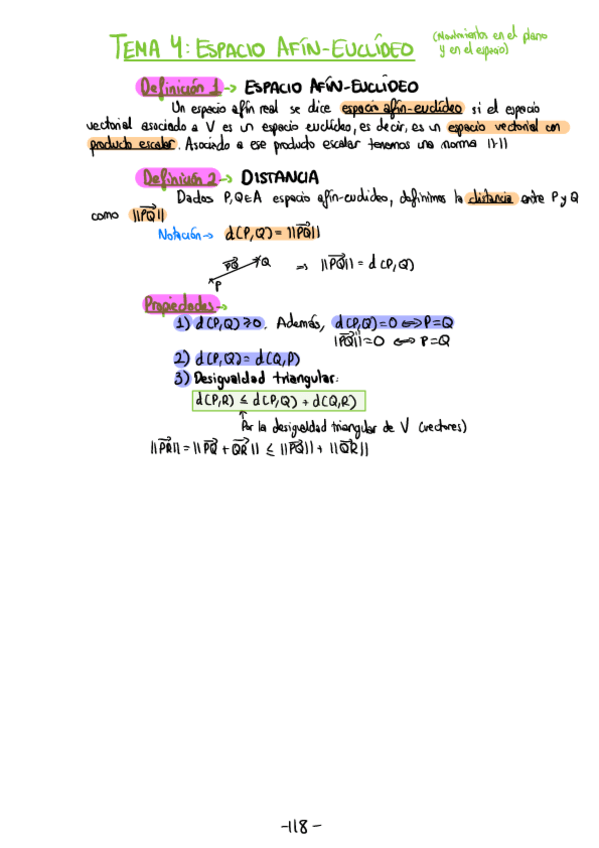 TEMA 4: ESPACIO AFÍN-EUCLÍDEO (Movimientos en el plano
y en el espacio)
Definición 1 → ESPACIO AFÍN-EUCLÍDEO
Un espacio afín real se dice espacio afín-euclídeo si el espacio
vectorial asociado a V es un espacio euclídeo, es decir, es un espacio vectorial con
producto escalar. Asociado a ese producto escalar tenemos una norma ||·||
Definición 2 → DISTANCIA
Dados P,Q∈A espacio afín-euclídeo, definimos la distancia entre P y Q
como ||PQ||
Notación → d(P,Q) = ||PQ||
PQ Q ⇒ ||PQ|| = d(P,Q)
P
Propiedades →
1) d(P,Q) ≥ 0. Además, d(P,Q)=0 ⟺ P=Q
||PQ||=0 ⟺ P=Q
2) d(P,Q) = d(Q,P)
3) Desigualdad triangular:
d(P,R) ≤ d(P,Q) + d(Q,R)
Por la desigualdad triangular de V (vectores)
||PR|| = ||PQ + QR|| ≤ ||PQ|| + ||QR||
-118-